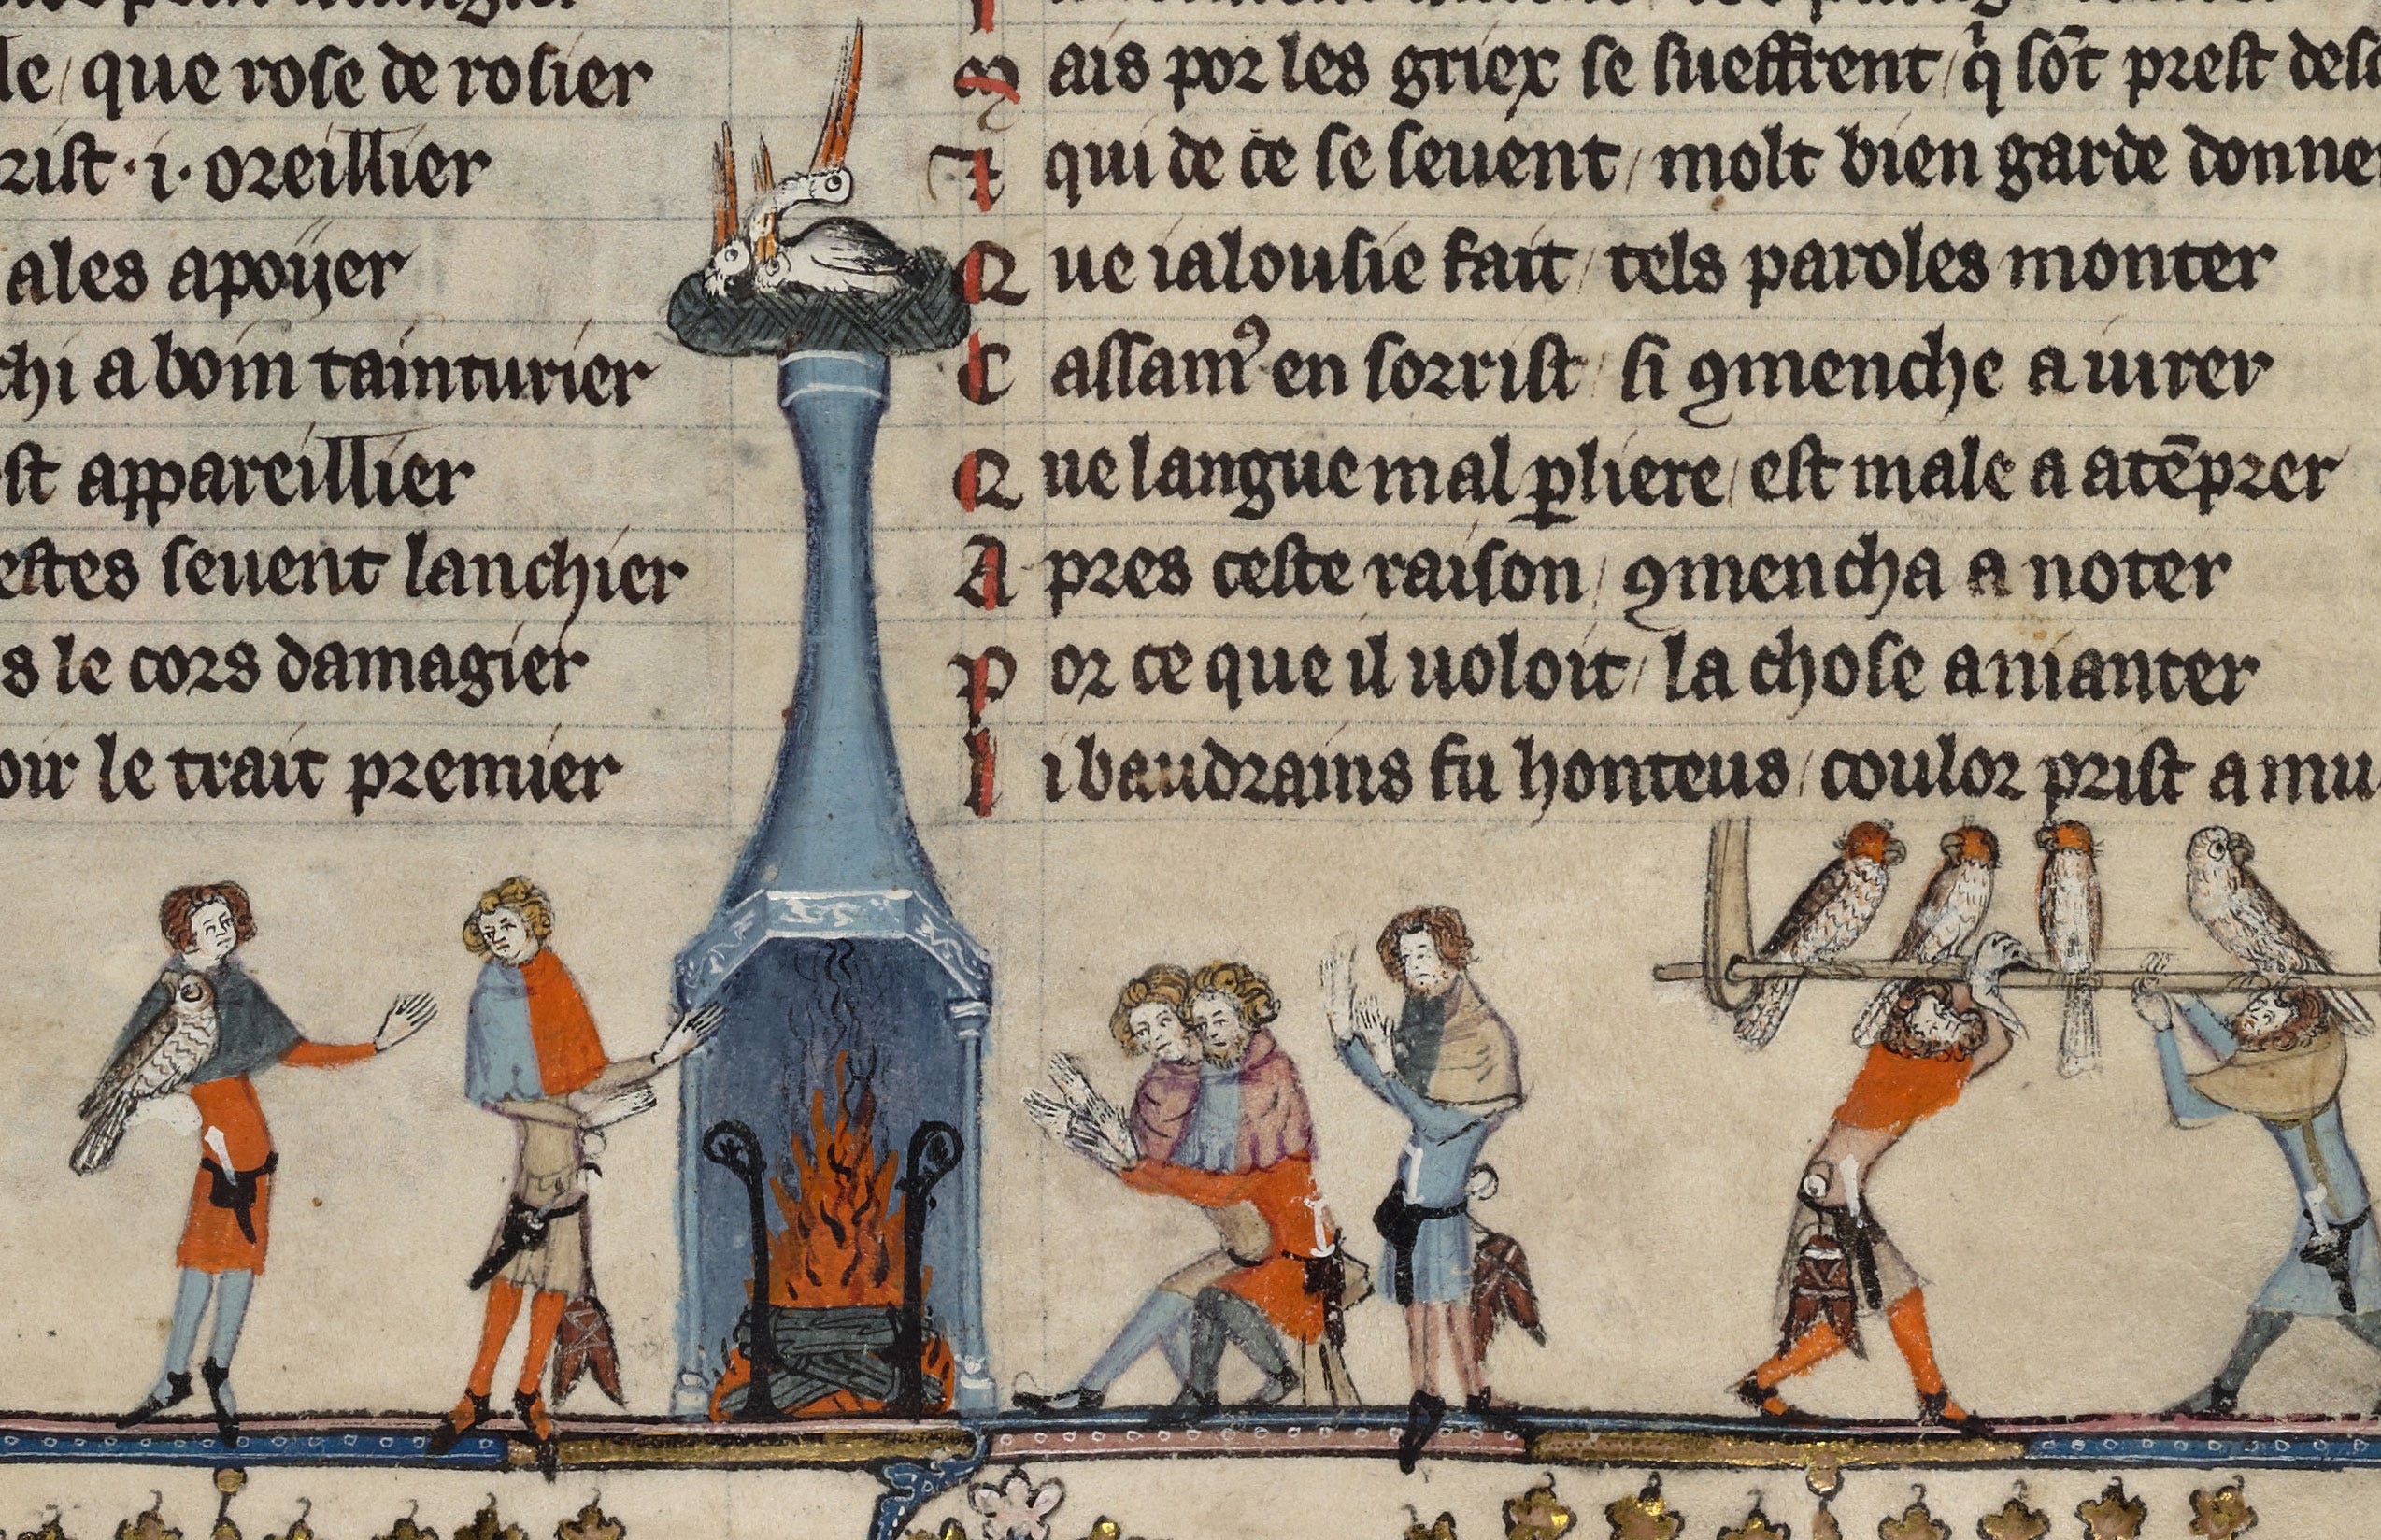 le / que rose de rosier
rist · i · oreillier
ales apoyer
chi a boin tainturier
st appareillier
estes seuent lanchier
s le cors damagier
oir le trait premier
Mais por les griex se sueffrent / q̾ sōt prest
Et qui de ce se seuent / molt bien garde donner
Que ialousie fait / tels paroles monter
Cassam᾽ en sorrist / si ꝯmenche a iurer
Que langue mal ꝑliere / est male a atēprer
Apres ceste raison / ꝯmencha a noter
Por ce que il uoloit / la chose anianter
Li baudrains fu honteus / coulor prist a mu